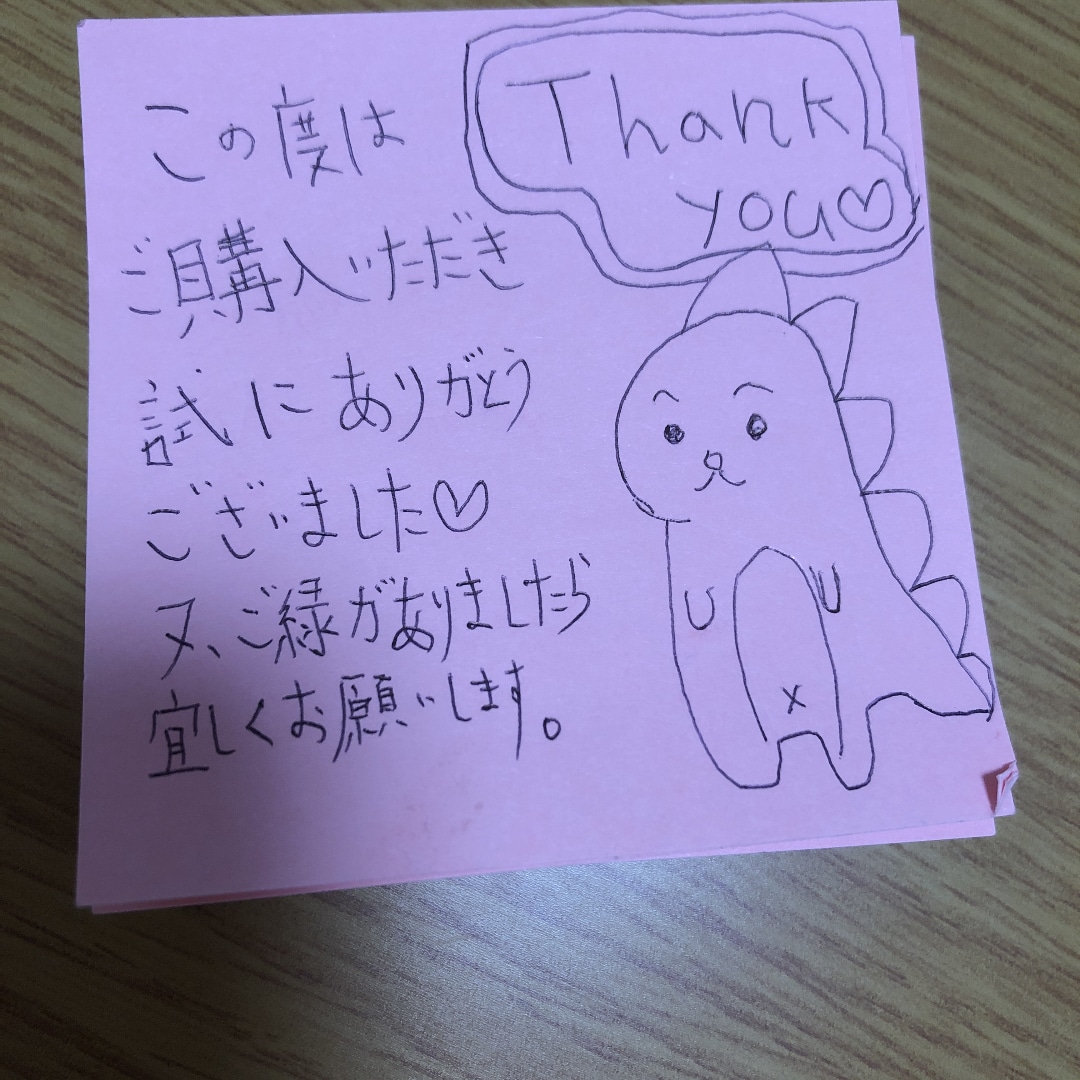 この度は
ご購入いただき
試にありがとう
ございました♡
又、ご緑がありましたら
宜しくお願いします。
Thank
you♡